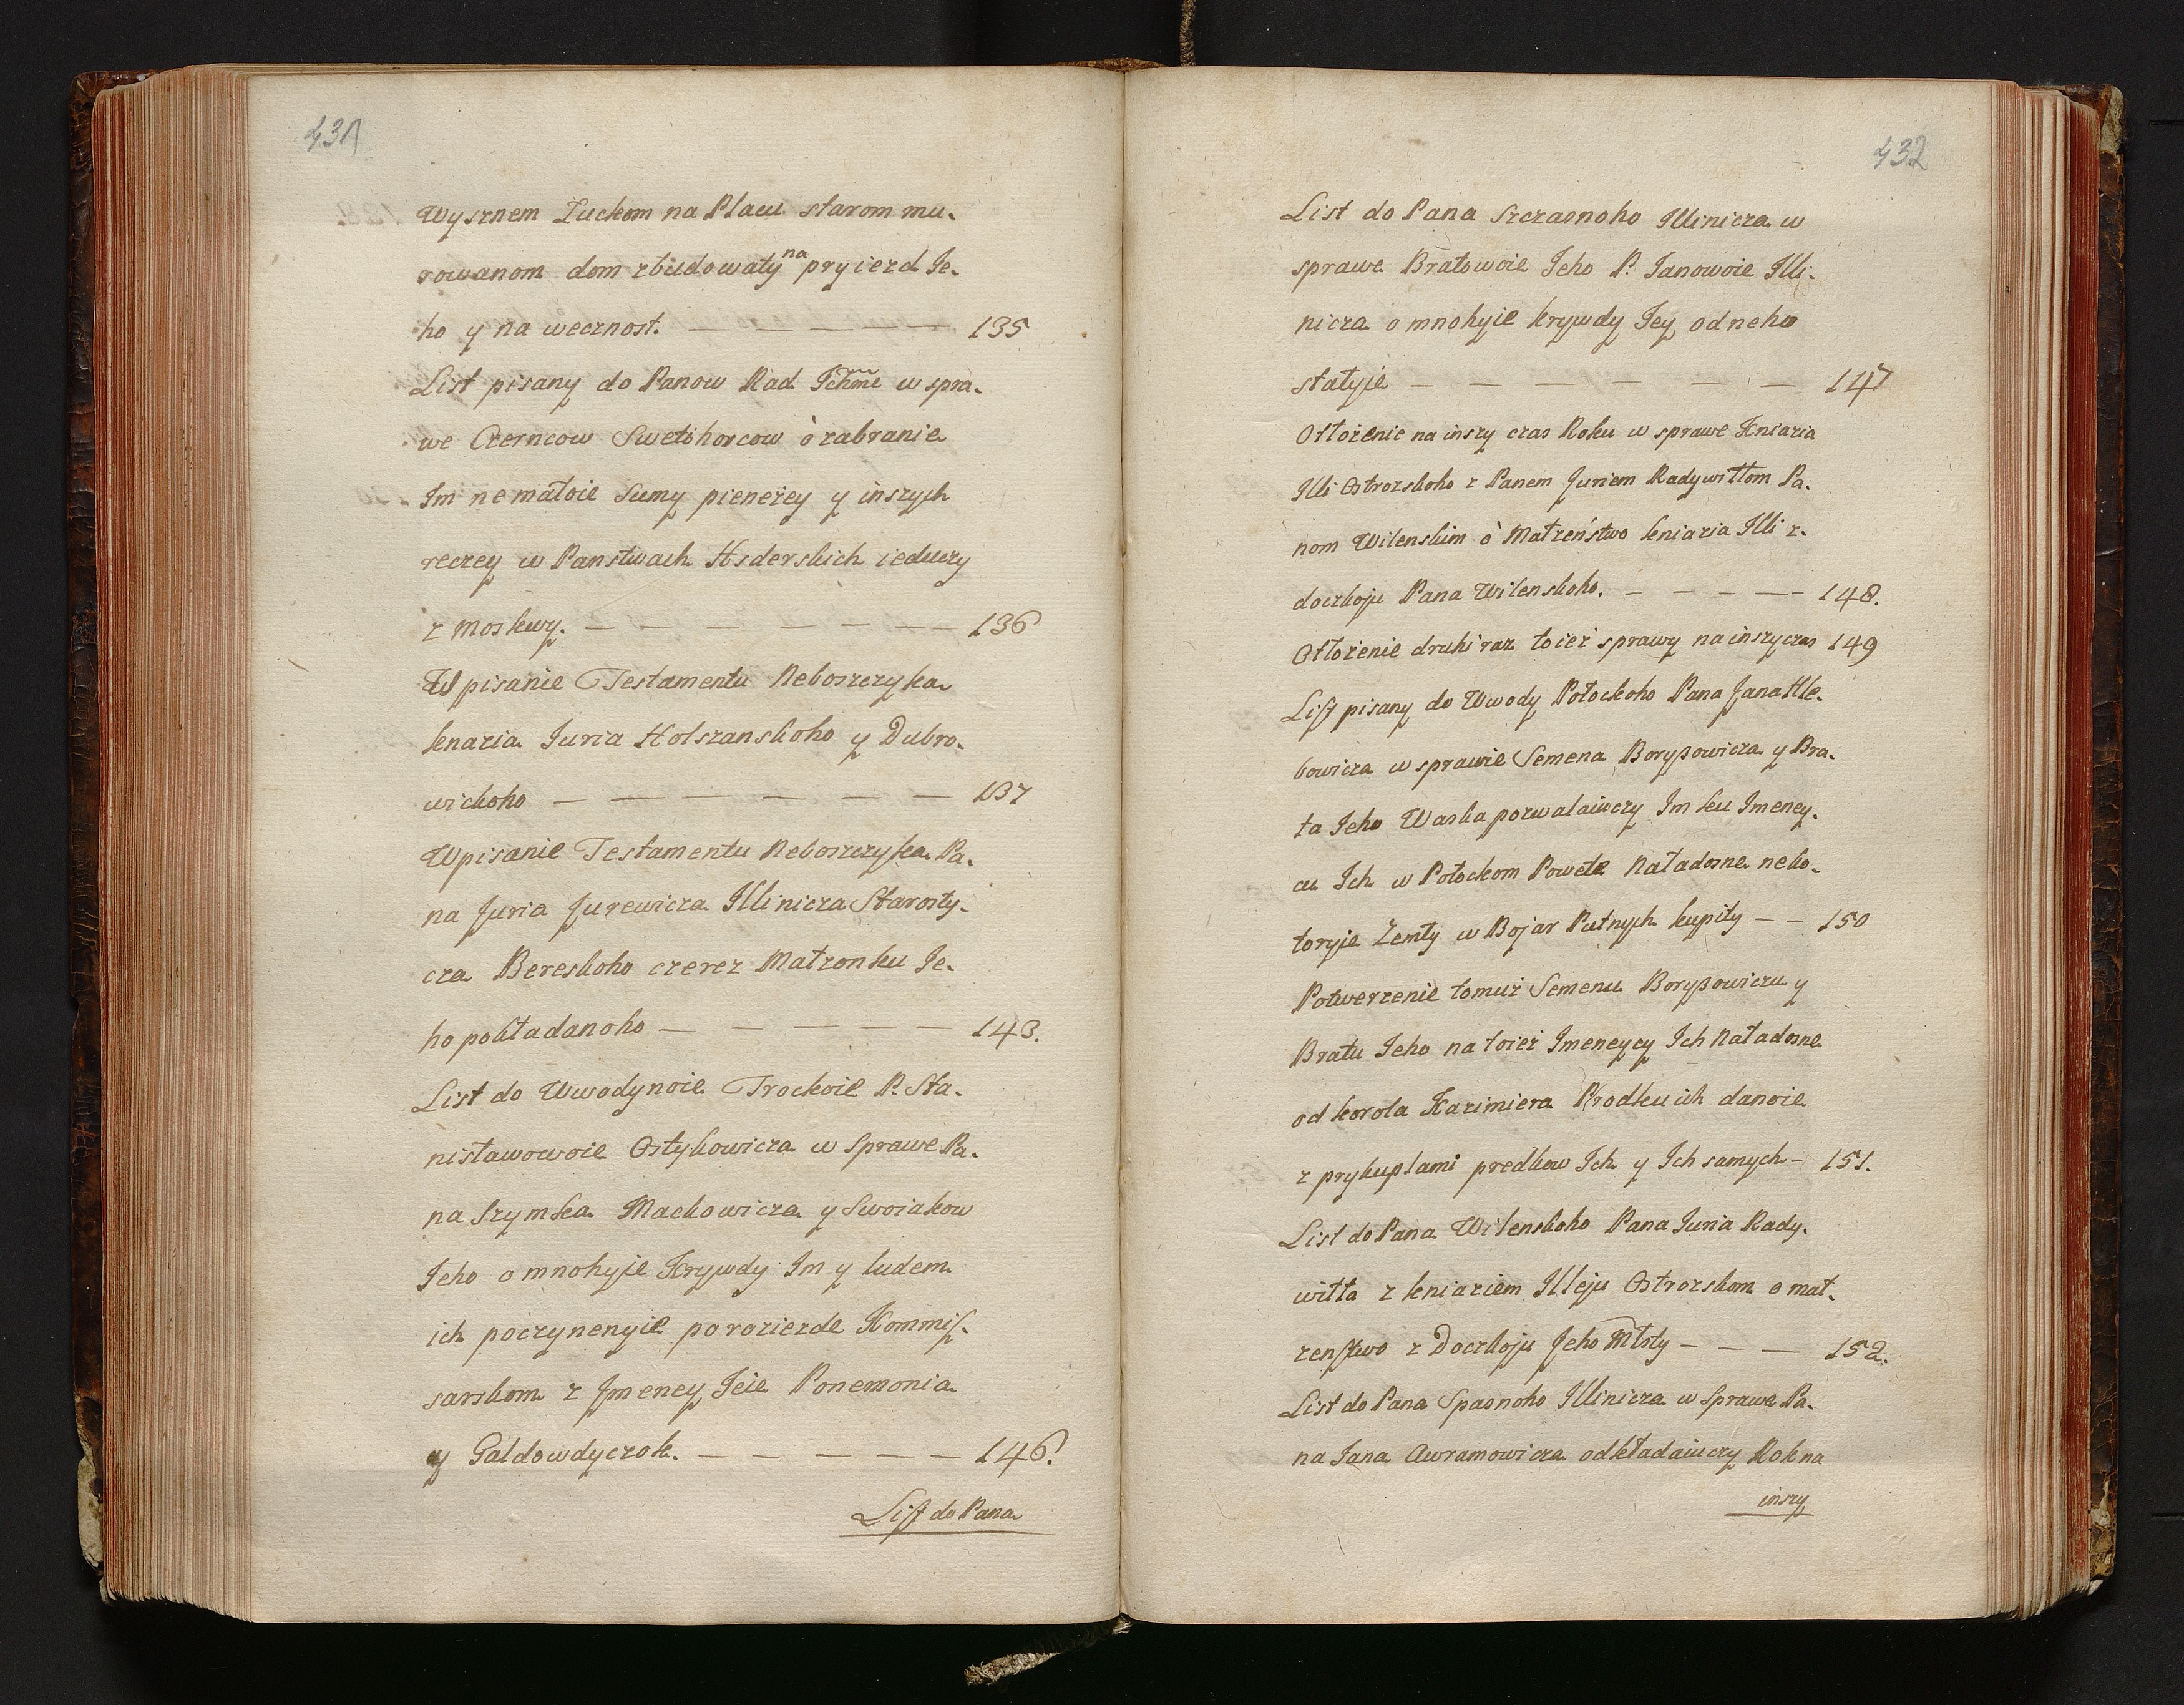 431
Wysznem Łuckom na Placu starom mu-
rowanom dom zbudowaty na pryiezd Je-
ho y na wecznost. — — — — — 135
List pisany do Panow Rad Ichme w spra-
we Czerncow Swetohorcow ò zabranie
Im nemałoie Sumy pieneżey y inszych
reczey w Panstwach Hsderskich ieduczy
z Moskwy. — — — — — — — 136
Wpisanie Testamentu Neboszczyka
knazia Juria Holszanskoho y Dubro-
wickoho — — — — — — 137
Wpisanie Testamentu Neboszczyka Pa-
na Juria Jurewicza Illinicza Starosty-
cza Bereskoho czerez Małzonku Je-
ho pokładanoho — — — — — 143.
List do Wwodynoie Trockoie P. Sta-
nisławowoie Ostykowicza w Sprawe Pa-
na Szymka Mackowicza y Swoiakow
Jeho o mnohyje Krywdy Im y ludem
ich poczynenyie po rozieżde Kommis-
sarskom z Jmeney Jeie Ponemonia
y Galdowdyczok. — — — — — 146.
List do Pana
432
List do Pana Szczasnoho Illinicza w
sprawe Bratowoie Jeho P. Janowoie Illi-
nicza o mnohyie krywdy Jey od neho
stałyje — — — — — — 147
Otłożenie na inszy czas Roku w sprawe Kniazia
Illi Ostrozskoho z Panem Juriem Radywiłłom Pa-
nom Wilenskim ò Małżeństwo kniazia Illi z-
doczkoju Pana Wilenskoho. — — — — 148.
Otłożenie druhi raz toież sprawy na inszy czas 149
List pisany do Wwody Połockoho Pana Jana Hle-
bowicza w sprawie Semena Boryßowicza y Bra-
ta Jeho Waska pozwalaiuczy Im ku Imeney-
cu Ich w Połockom Powete Naładosne neko-
toryje Zemly w Bojar Putnych kupity — — 150
Potwerzenie tomuż Semenu Boryßowiczu y
Bratu Jeho na toież Imeneycy Ich Naładosne
od korola Kazimiera Prodku ich danoie
z prykuplami predkow Ich y Ich samych — 151.
List do Pana Wilenskoho Pana Juria Rady-
wiłła z kniaziem Illeju Ostrozskom o mał-
zenstwo z Doczkoju Jeho Młsty — — — 152.
List do Pana Spasnoho Illinicza w Sprawe Pa-
na Jana Awramowicza odkładaiuczy Rok na
inszy